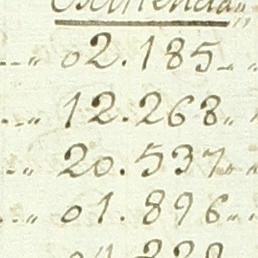 02.185
12.268
20.537
01.896